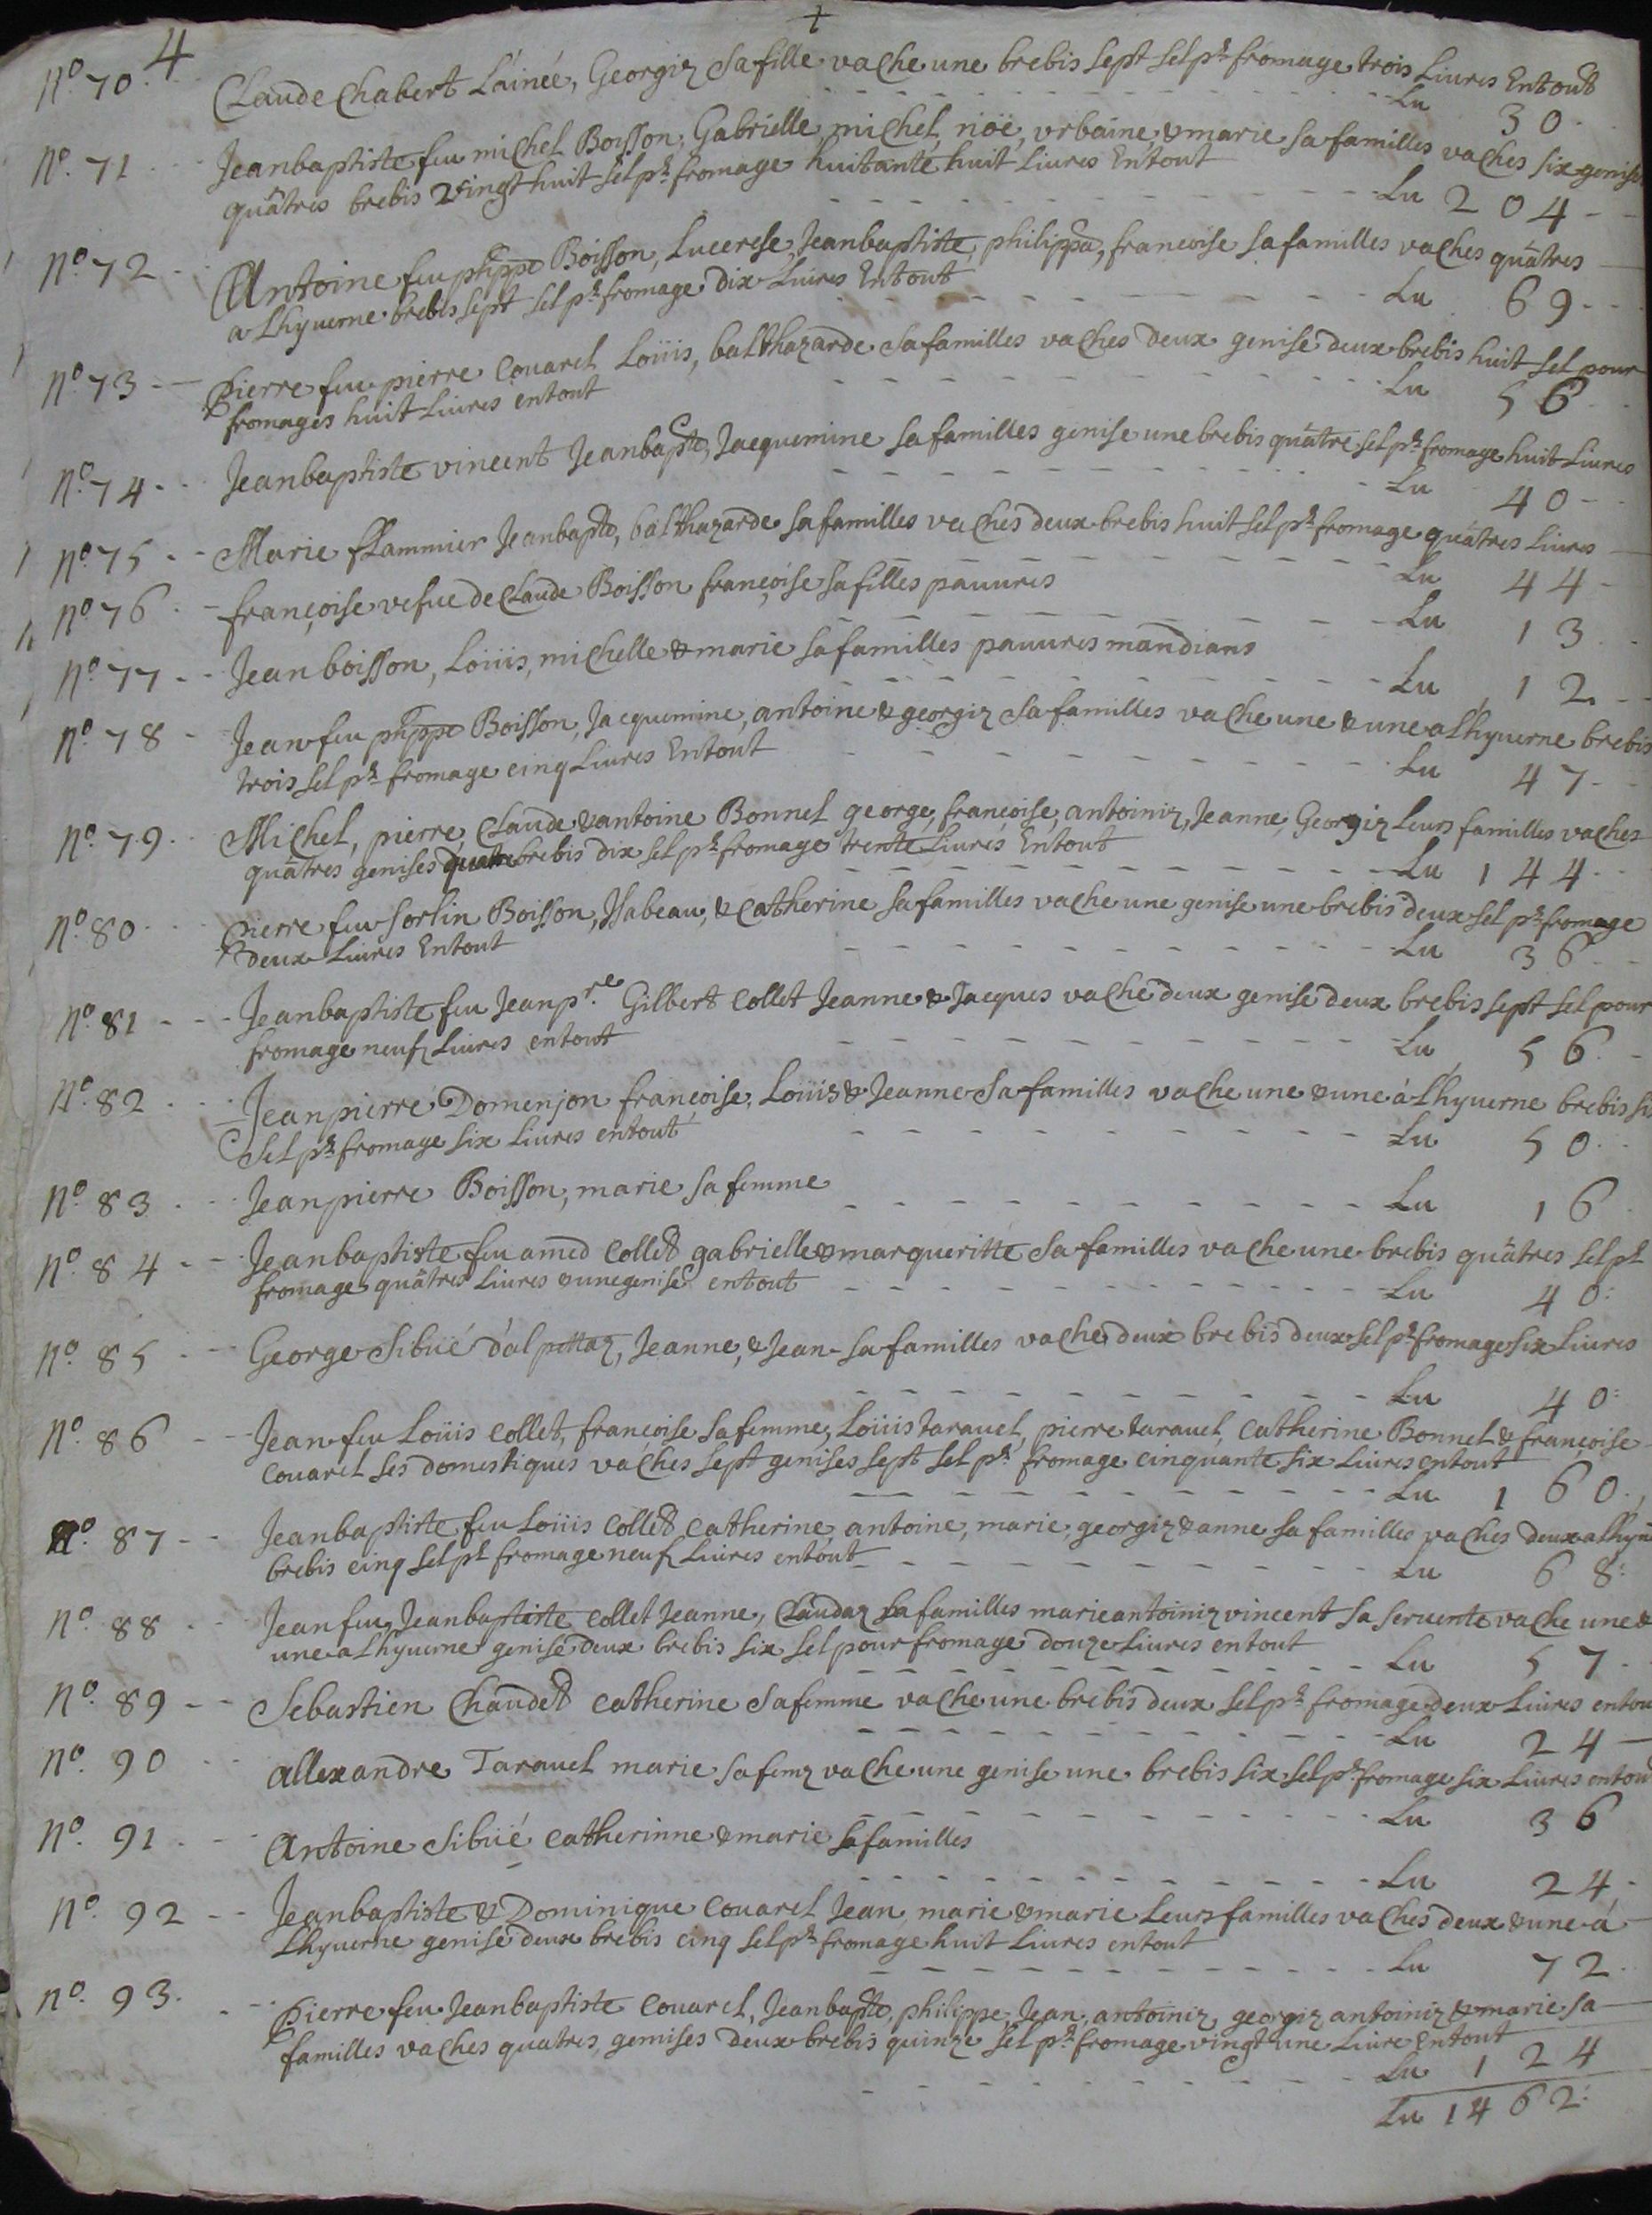 4
+
N.º 70. Claude Chabert L'ainée, Georgiz sa fille vache une brebis sept sel p.r fromage trois Liures Entout
Lu 30.
N.º 71 Jeanbaptiste feu michel Boisson, Gabrielle, michel, noë, vrbaine & marie sa familles vaches six genise
quâtres brebis vingt huit sel p.r fromage huitante huit Liures Entout
Lu 204
N.º 72 Antoine feu phippe Boisson, Lucerese, Jeanbaptiste, philippa, francoise sa familles vaches quâtres
a Lhyuerne brebis sept sel p.r fromage dix Liures Entout
Lu 69
N.º 73 Pierre feu pierre Couarel Loüis, balthazarde sa familles vaches deux genise deux brebis huit sel pour
fromages huit Liures entout
Lu 56
N.º 74 Jeanbaptiste vincent Jeanbapte, Jacquemine sa familles genise une brebis quâtre sel p.r fromage huit Liures
Lu 40
N.º 75 Marie fflammier Jeanbapte, balthazarde sa familles vaches deux brebis huit sel p.r fromage quâtres Liures
Lu 44
N.º 76 françoise vefue de Claude Boisson françoise sa filles pauures
Lu 13
N.º 77 Jean boisson, Loüis, michelle & marie sa familles pauures mandians
Lu 12
N.º 78 Jean feu phippe Boisson, Jacquemine, antoine & georgiz sa familles vache une & une a Lhyuerne brebis
trois sel p.r fromage cinq Liures Entout
Lu 47
N.º 79 Michel, pierre, Claude & antoine Bonnel george, françoise, antoiniz, Jeanne, Georgiz Leurs familles vaches
quâtres genises quatre brebis dix sel p.r fromage trente Liures Entout
Lu 144
N.º 80 Pierre feu sorlin Boisson, Isabeau, & Catherine sa familles vache une genise une brebis deux sel p.r fromage
deux Liures Entout
Lu 36
N.º 81 Jeanbaptiste feu Jean p.re Gilbert Collet Jeanne & Jacques vache deux genise deux brebis sept sel pour
fromage neuf Liures entout
Lu 56
N.º 82 Jean pierre Domenjon françoise, Loüis & Jeanne sa familles vache une & une á Lhyuerne brebis si
sel p.r fromage six Liures entout
Lu 50
N.º 83 Jean pierre Boisson, marie sa femme
Lu 16
N.º 84 Jeanbaptiste feu amed Collet gabrielle & margueritte sa familles vache une brebis quâtres sel p.r
fromage quâtres Liures & une genise entout
Lu 40
N.º 85 George Sibüé d'alpettaz, Jeanne, & Jean sa familles vache deux brebis deux sel p.r fromage six Liures
Lu 40
N.º 86 Jean feu Loüis Collet, françoise sa femme, Loüis tarauel, pierre tarauel, Catherine Bonnel & françoise
Couarel ses domestiques vaches sept genises sept sel p.r fromage cinquante six Liures entout
Lu 160
N.º 87 Jeanbaptiste feu Loüis Collet Catherine, antoine, marie, georgiz & anne sa familles vaches deux a Lhyu
brebis cinq sel p.r fromage neuf Liures entout
Lu 68
N.º 88 Jean feu Jeanbaptiste Collet Jeanne, Claudaz sa familles marie antoiniz vincent sa seruente vache une &
une a Lhyuerne genise deux brebis six sel pour fromage douze Liures entout
Lu 57
N.º 89 Sebastien Chaudet Catherine sa femme vache une brebis deux sel p.r fromage deux Liures entou
Lu 24
N.º 90 allexandre Tarauel marie sa femz vache une genise une brebis six sel p.r fromage six Liures entout
Lu 36
N.º 91 Antoine Sibüé Catherinne & marie sa familles
Lu 24
N.º 92 Jeanbaptiste & Dominique Couarel Jean, marie & marie Leurs familles vaches deux & une á
Lhyuerne genise deux brebis cinq sel p.r fromage huit Liures entout
Lu 72
N.º 93. Pierre feu Jeanbaptiste Couarel, Jeanbapte, philippe, Jean, antoiniz, georgiz antoiniz & marie sa
familles vaches quatres, genises deux brebis quinze sel p.r fromage vingt une Liure entout
Lu 124
Lu 1462